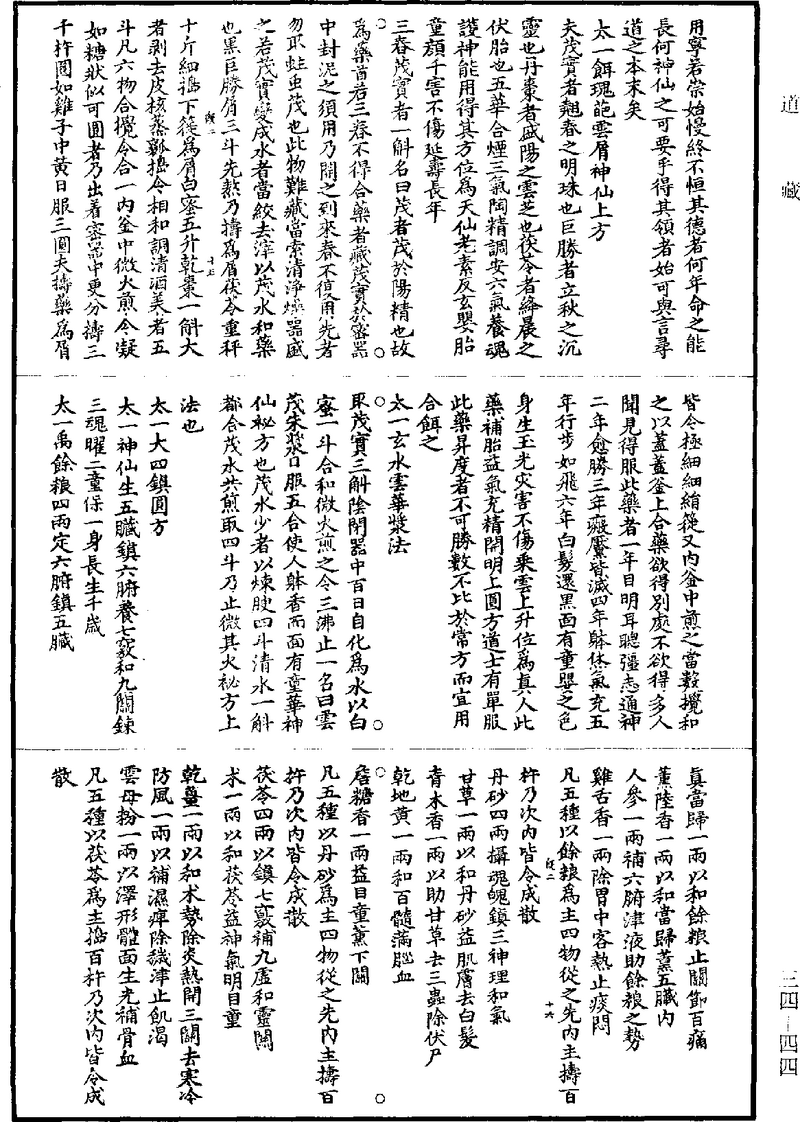 道藏
三四—四四
用寧若崇始慢終不恒其德者何年命之能
長何神仙之可要乎得其領者始可與言尋
道之本末矣
太一餌瑰葩雲屑神仙上方
夫茂實者翹春之明珠也巨勝者立秋之沉
靈也丹棗者盛陽之雲芝也茯苓者絳晨之
伏胎也五華合煙三氣陶精調安六氣養魂
護神能用得其方位為天仙老素反玄嬰胎
童顏千害不傷延壽長年
三春茂實者一斛名曰茂者茂於陽精也故
為藥首若三春不得合藥者藏茂實於密器
中封泥之須用乃開之到來春不復用先者
勿取蛀虫茂也此物難藏當索清淨燥器盛
之若茂實變成水者當絞去滓以茂水和藥
也黑巨勝屑三斗先熬乃擣為屑茯苓重秤
十斤細擣下簁為屑白蜜五升乾棗一斛大
者剥去皮核蒸爛搗令相和調清酒美者五
斗凡六物合攪令合一內釜中微火煎令凝
如糖狀似可圓者乃出着密器中更分擣三
千杵圓如雞子中黄日服三圓夫擣藥為屑
皆令極細細絹簁又內釜中煎之當數攪和
之以蓋蓋釜上合藥欲得别處不欲得多人
聞見得服此藥者一年目明耳聰彊志通神
二年愈勝三年瘢黶皆滅四年躰休氣充五
年行步如飛六年白髮還黑面有童嬰之色
身生玉光灾害不傷乘雲上升位為真人此
藥補胎益氣充精開明上圓方道士有單服
此藥昇度者不可勝數不比於常方而宜用
合餌之
太一玄水雲華漿法
取茂實三斛陰閉器中百日自化為水以白
蜜一斗合和微火煎之令三沸止一名曰雲
茂朱漿日服五合使人躰香而面有童華神
仙秘方也茂水少者以煉腴四斗清水一斛
都合茂水共煎取四斗乃止微其火祕方上
法也
太一大四鎮圓方
太一神仙生五臟鎮六腑養七竅和九關鍊
三魂曜二童保一身長生千歲
太一禹餘粮四兩定六腑鎮五臟
真當歸一兩以和餘粮止關節百痛
薰陸香一兩以和當歸薰五臟內
人參一兩補六腑津液助餘粮之勢
雞舌香一兩除胃中客熱止痰悶
凡五種以餘粮為主四物從之先內主擣百
杵乃次內皆令成散
丹砂四兩攝魂魄鎮三神理和氣
甘草一兩以和丹砂益肌膚去白髮
青木香一兩以助甘草去三蟲除伏尸
乾地黄一兩和百髓滿腦血
詹糖香一兩益目童薰下關
凡五種以丹砂為主四物從之先內主擣百
杵乃次內皆令成散
茯苓四兩以鎮七竅補九虛和靈關
朮一兩以和茯苓益神氣明目童
乾薑一兩以和朮勢除炎熱開三關去寒冷
防風一兩以補濕痺除穢津止飢渴
雲母粉一兩以澤形體面生光補骨血
凡五種以茯苓為主擣百杵乃次內皆令成
散